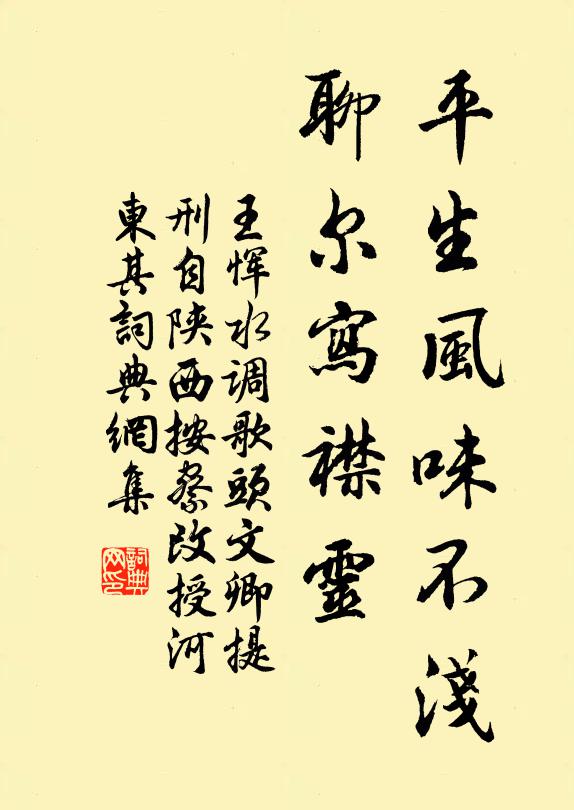 平生風味不淺
聊尔寫襟靈
王惲水调歌頭文卿提
刑自陝西按察改授河
東其詞典網集
詞典网印